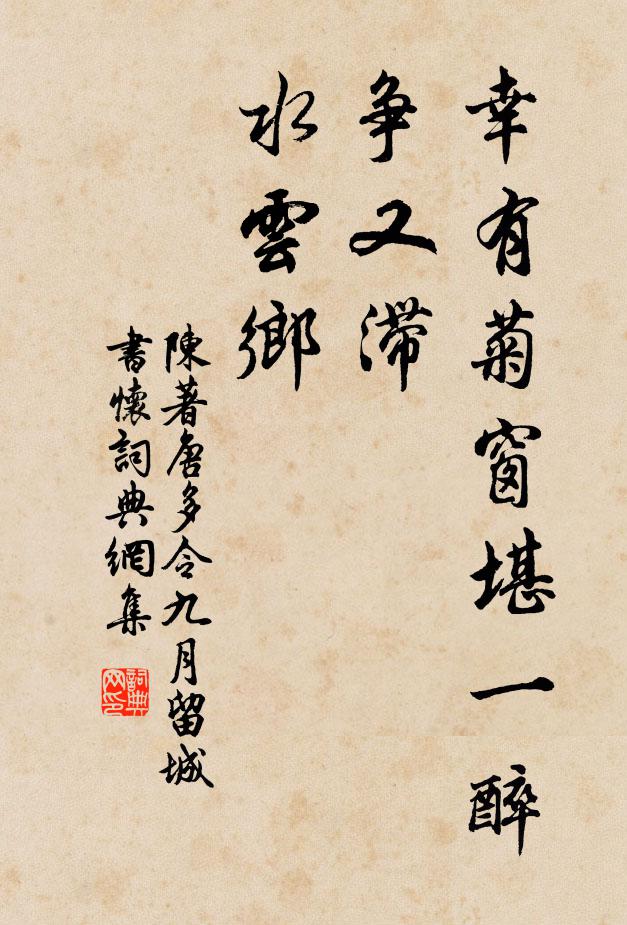 幸有菊窗堪一醉
爭又滯
水雲鄉
陳著唐多令九月留城
書懷詞典網集
詞典网印